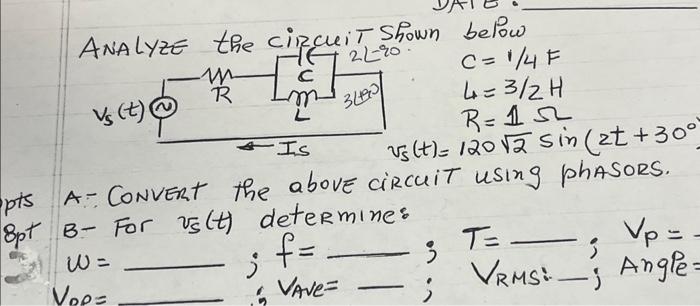 DATE:
ANALYZE the circuit shown below
2∠-90
C = 1/4 F
C
R
L = 3/2 H
3∠+90
L
Vs(t)
R = 1 Ω
Is
vs(t) = 120√2 sin(2t + 30°)
pts A- CONVERT the above circuit using phasors.
8pt B- For vs(t) determine:
W = ____ ; f = ____ ; T = ____ ; Vp =
Vpp = ____ ; VAVE = ____ ; VRMS: ____ ; Angle =